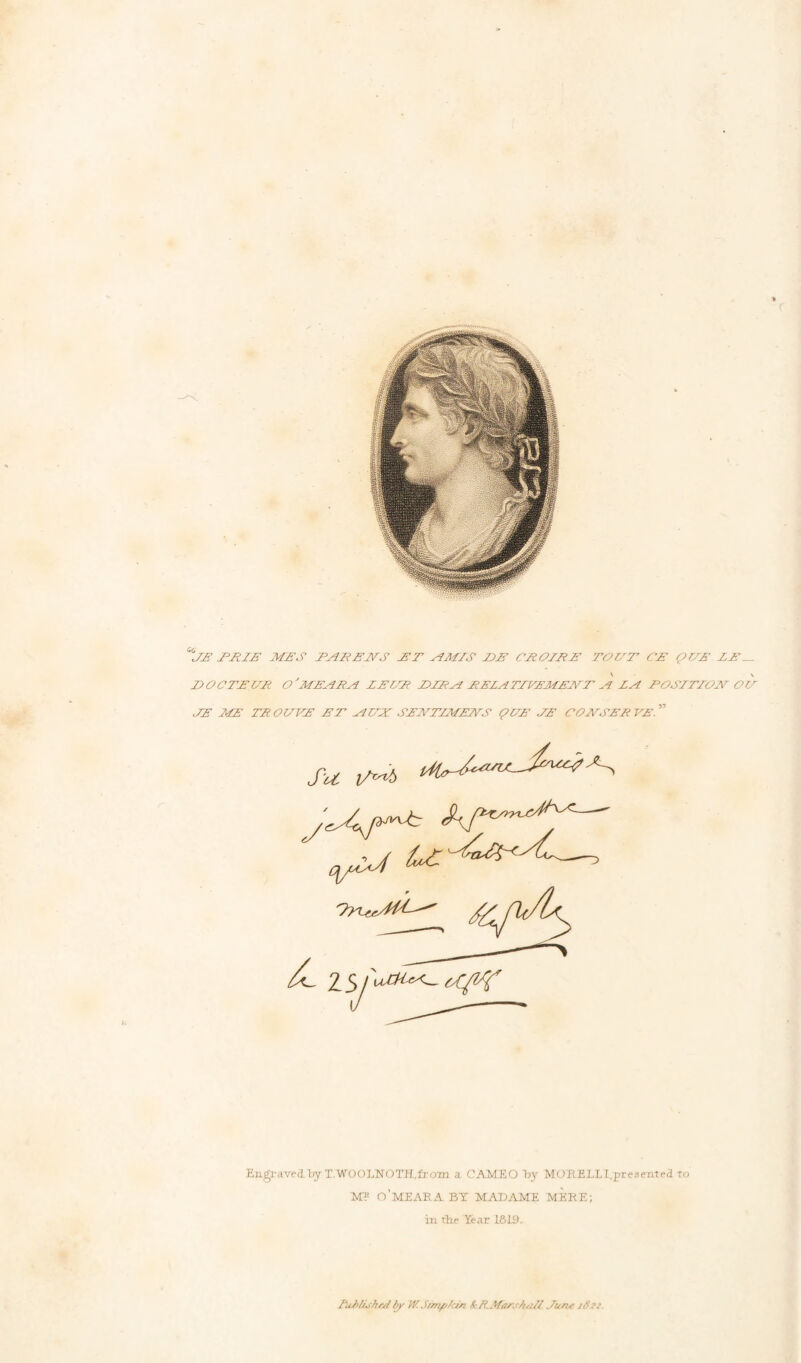 “JE PRIE MES PARENS ET AMIS DE CROIRE TOUT CE QUE LE
DOCTEUR O'MEARA LEUR DIRA RELATIVEMENT À LA POSITION OÙ
JE ME TROUVE ET AUX SENTIMENS QUE JE CONSERVE.”
le 25 juillet
Engraved by T. WOOLNOTH, from a CAMEO by MORELLI, presented to
Mr. O'MEARA BY MADAME MÈRE;
in the Year 1819.
Published by W. Simpkin & R. Marshall June 1822.